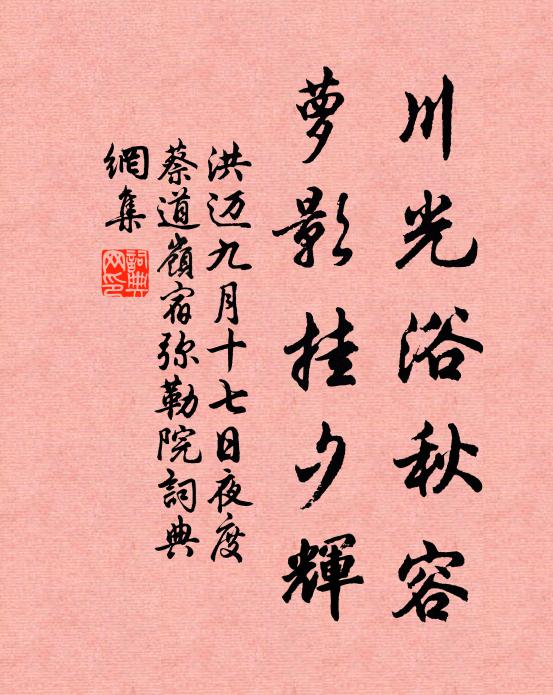 川光浴秋容
萝影挂夕輝
洪迈九月十七日夜度
蔡道嶺宿弥勒院詞典
網集
詞典网印